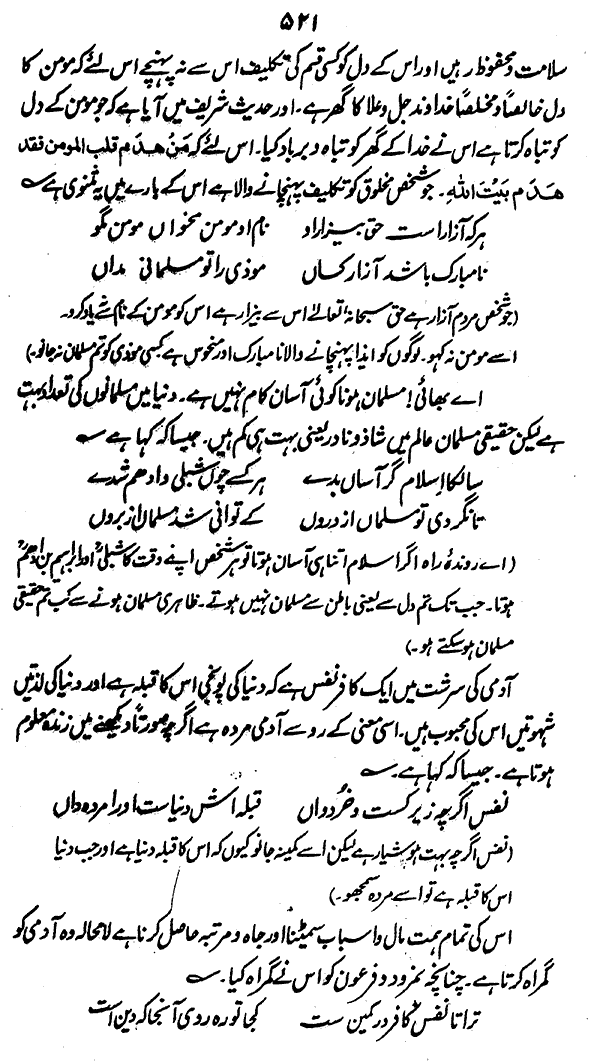 ۵۲۱
سلامت و محفوظ رہیں اور اس کے دل کو کسی قسم کی تکلیف اس سے نہ پہنچے اس لئے کہ مومن کا
دل خالصاً و مخلصاً خداوند جل و علا کا گھر ہے۔ اور حدیث شریف میں آیا ہے کہ جو مومن کے دل
کو تباہ کرتا ہے اس نے خدا کے گھر کو تباہ و برباد کیا۔ اس لئے کہ مَنْ هدَم قلب المومن فقد
هدَم بَیْتَ اللهِ۔ جو شخص مخلوق کو تکلیف پہنچانے والا ہے اس کے بارے میں یہ مثنوی ہے
ہر کہ آزار است حق بیزار او نام او مومن مخواں مومن مگو
نامبارک باشد آزار کساں موذی را تو مسلمانی مداں
(جو شخص مردم آزار ہے حق سبحانہٗ تعالےٰ اس سے بیزار ہے اس کو مومن کے نام سے یاد نہ کرو۔
اسے مومن نہ کہو۔ لوگوں کو ایذا پہنچانے والا نامبارک اور منحوس ہے کسی موذی کو تم مسلمان نہ جانو۔)
اے بھائی! مسلمان ہونا کوئی آسان کام نہیں ہے۔ دنیا میں مسلمانوں کی تعداد بہت
ہے لیکن حقیقی مسلمان عالم میں شاذ و نادر یعنی بہت ہی کم ہیں۔ جیسا کہ کہا ہے
سالکا اسلام گر آساں بدے ہر کسے چوں شبلی و ادھم شدے
تا نگردی تو مسلماں از دروں کے توانی شد مسلماں از بروں
(اے روندۂ راہ اگر اسلام اتنا ہی آسان ہوتا تو ہر شخص اپنے وقت کا شبلیؒ اور ابراہیم بن ادھمؒ
ہوتا۔ جب تک تم دل سے یعنی باطن سے مسلمان نہیں ہوتے۔ ظاہری مسلمان ہونے سے کب تم حقیقی
مسلمان ہو سکتے ہو۔)
آدمی کی سرشت میں ایک کافر نفس ہے کہ دنیا کی پونجی اس کا قبلہ ہے اور دنیا کی لذتیں
شہوتیں اس کی محبوب ہیں۔ اسی معنی کے رو سے آدمی مردہ ہے اگرچہ صورتاً دیکھنے میں زندہ معلوم
ہوتا ہے۔ جیسا کہ کہا ہے۔
نفس اگرچہ زیرکست و خُردواں قبلہ اش دنیاست او را مردہ داں
(نفس اگرچہ بہت ہوشیار ہے لیکن اسے کمینہ جانو کیوں کہ اس کا قبلہ دنیا ہے اور جب دنیا
اس کا قبلہ ہے تو اسے مردہ سمجھو۔)
اس کی تمام ہمت مال و اسباب سمیٹنا اور جاہ و مرتبہ حاصل کرنا ہے لامحالہ وہ آدمی کو
گمراہ کرتا ہے۔ چنانچہ نمرود و فرعون کو اس نے گمراہ کیا۔
ترا تا نفس کافر در کمین ست کجا تو رہ روی آنجا کہ دین است